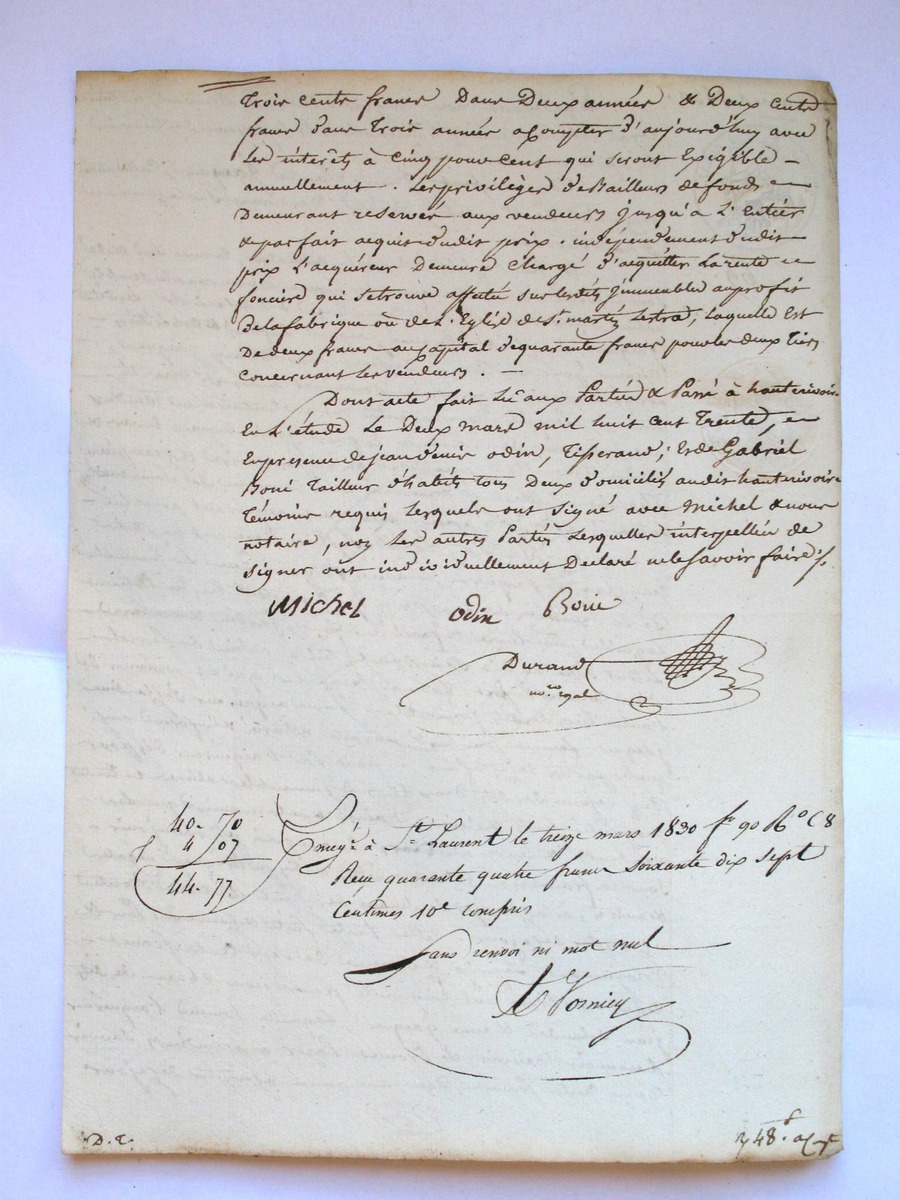 Trois cents francs Dans Deux années & Deux Cents
francs dans Trois années acompter d'aujourd'huy avec
Les intérêts à Cinq pour Cent qui seront Exigible –
annuellement. Les privilèges de Bailleurs de fonds
Demeurant reservés aux vendeurs jusqu'à L'Entier
& parfait acquit dudit prix. indépendement dudit
prix L'acquéreur Demeure Chargé d'acquitter La rente
foncière qui setrouve affectée sur lesdits immeuble auprofit
De la fabrique ou de L'Eglise de St. martin Lestra, Laquelle Est
De deux francs au Capital de quarante francs pour les deux Tiers
Concernant Les vendeurs. –
Dont acte fait Lu aux Parties & Passé à hauterivoire
En L'étude Le Deux mars mil huit cent Trente,
En presence de jean denis odin, Tisserand; Et de Gabriel
Boné Tailleur d'habits Tous Deux domiciliés audit hauterivoire
Témoins requis Lesquels ont signé avec Michel & nous
notaire, non Les autres Parties Lesquelles interpellées de
signer ont individuellement Declaré ne le savoir faire ./.
Michel odin Boné
Durand
no.re royal
40. 70
4 07
44. 77
Enreg.é à St. Laurent le treize mars 1830 fo 90 Ro C 8
Reçu quarante quatre francs soixante dix sept
Centimes 10e compris
Sans renvoi ni mot nul
D. T.
48.